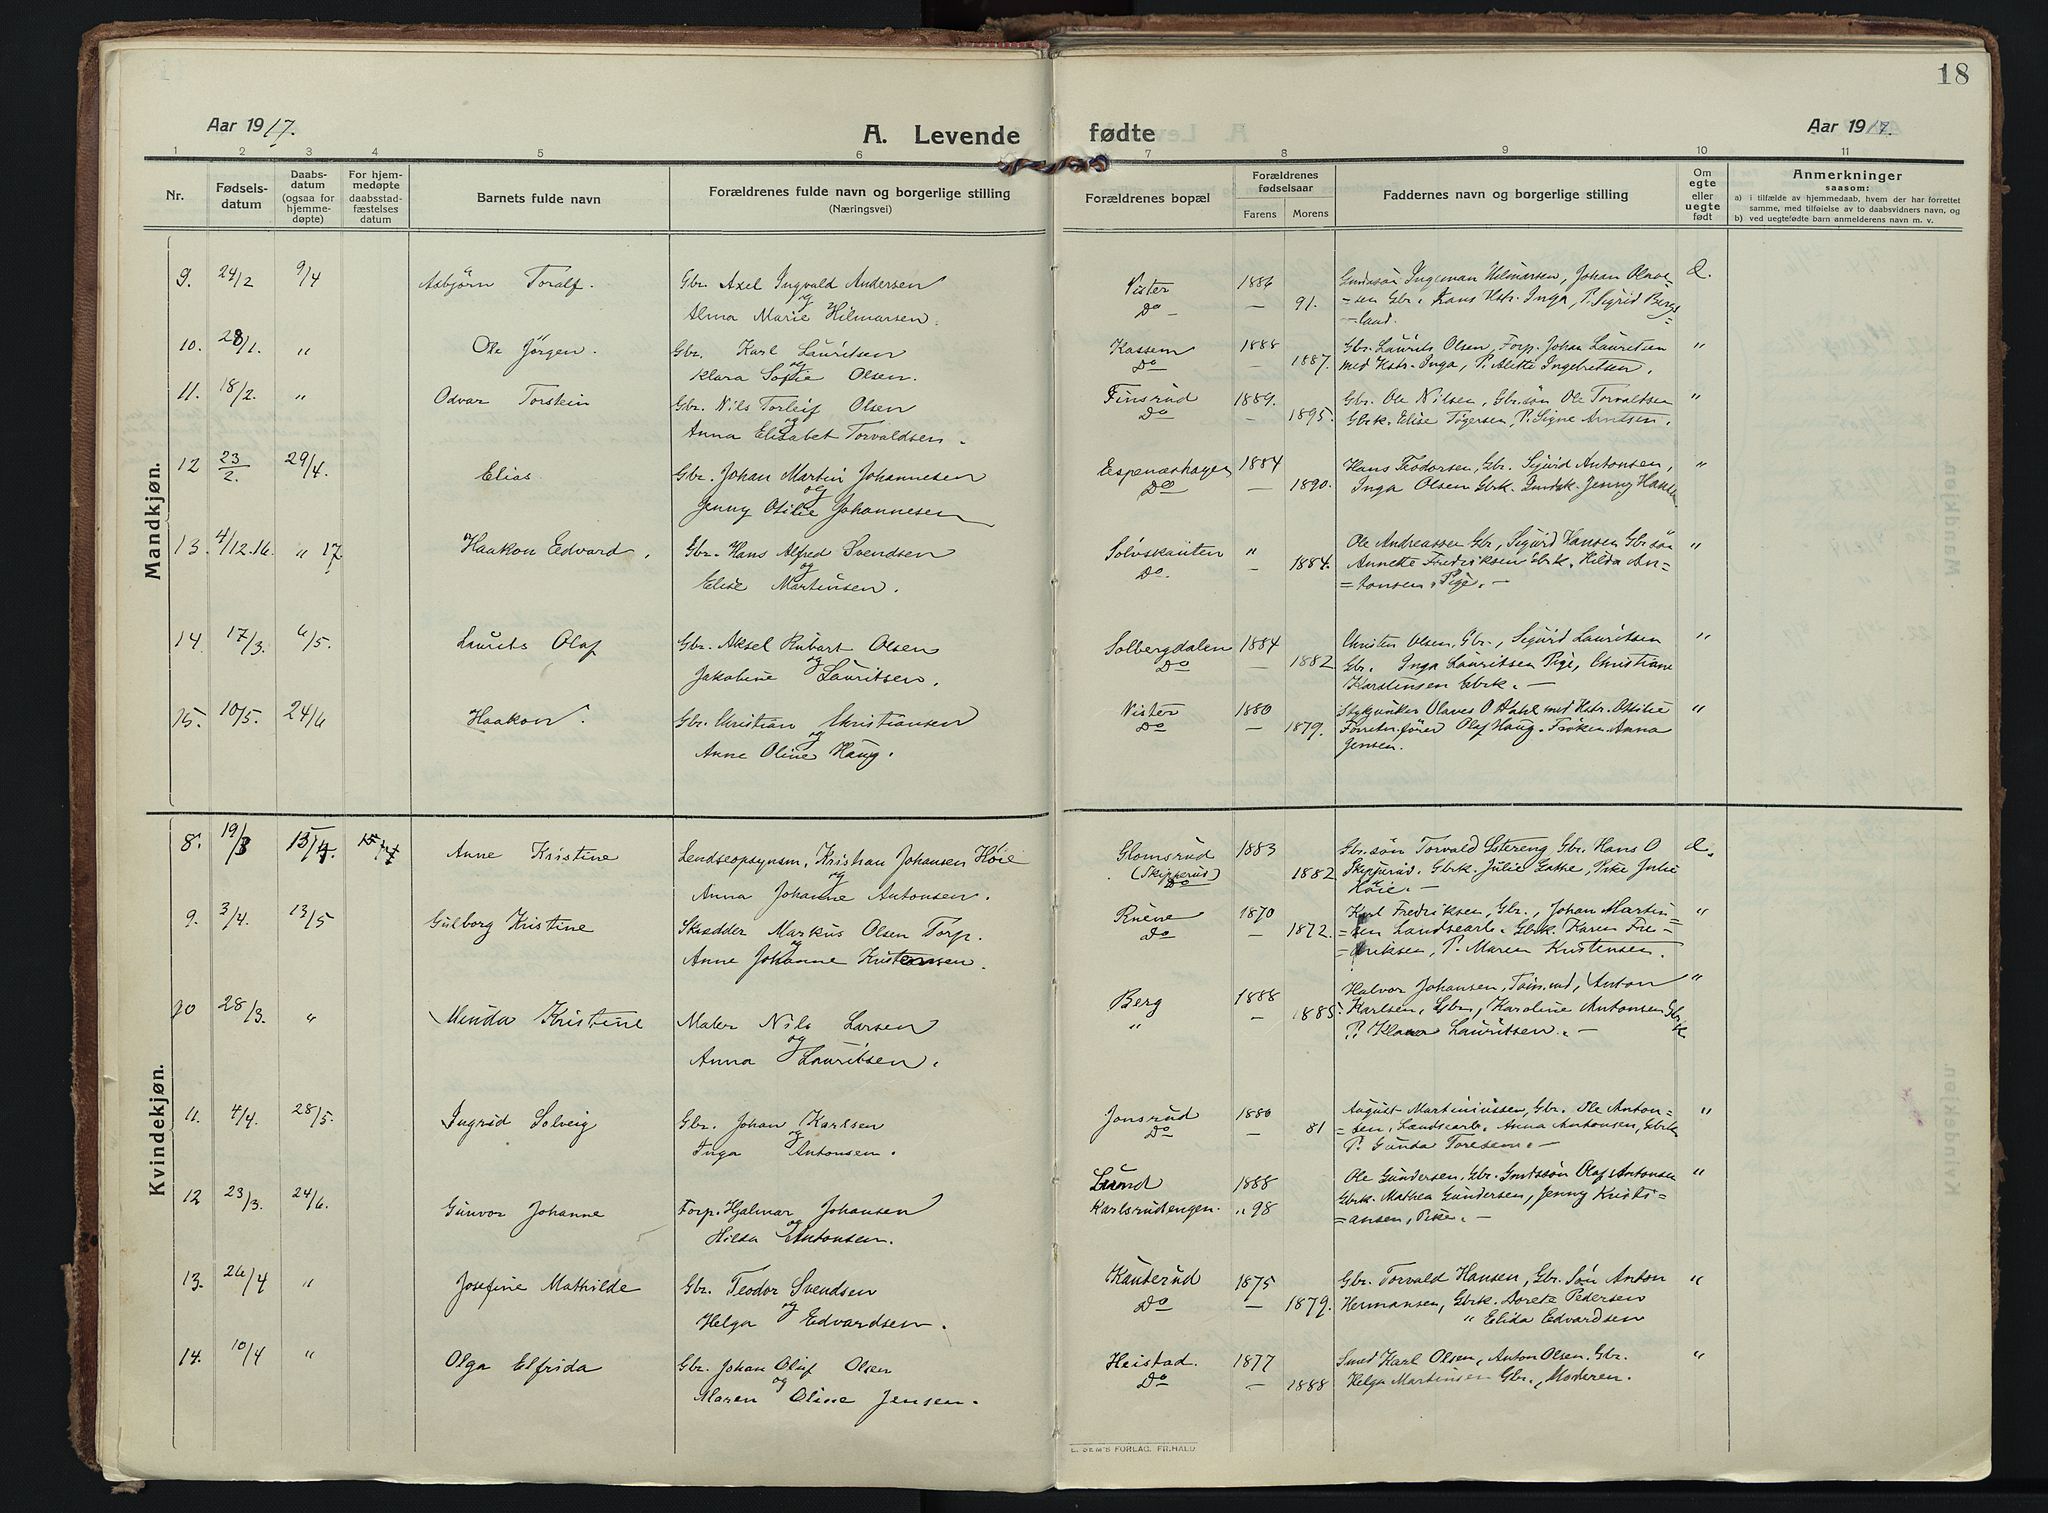 18
Aar 1917.
A. Levende fødte
Aar 1917.
1 2 3 4 5 6 7 8 9 10 11
Nr.
Fødsels-
datum
Daabs-
datum
(ogsaa for
hjemme-
døpte)
For hjem-
medøpte
daabsstad-
fæstelses
datum
Barnets fulde navn
Forældrenes fulde navn og borgerlige stilling
(Næringsvei)
Forældrenes bopæl
Forældrenes
fødselsaar
Farens
Morens
Faddernes navn og borgerlige stilling
Om
egte
eller
uegte
født
Anmerkninger
saasom:
a) i tilfælde av hjemmedaab, hvem der har forrettet
samme, med tilføielse av to daabsvidners navn, og
b) ved uegtefødte barn anmelderens navn m. v.
Mandkjøn.
9. 24/2 9/4 Asbjørn Toralf. Gbr. Axel Ingvald Andersen Vister 1886 Ingeman Hilmarsen, Johan Olave-
og
Alma Marie Hilmarsen. Do — 91. =sen Gbr., Hans Hstr. Inga, P. Sigrid Bergs=
=land.
10. 28/1. " Ole Jörgen. Gbr. Karl Lauritsen Kassem 1888 Gbr. Laurits Olsen, Forp. Johan Lauritsen "
og
Klara Sofie Olsen. Do — 1887. med Hstr. Inga, P. Alette Ingebretsen.
11. 18/2. " Odvar Torstein Gbr. Nils Torleif Olsen Finsrud 1889. Gbr. Ole Nilsen, Gbr.søn Ole Torvaldsen "
og
Anna Elisabet Torvaldsen. Do — 1895. Gbrk. Elise Tögersen, P. Signe Arntsen.
12 23/2. 29/4. Elias. Gbr. Johan Martin Johannesen Espenæshagen 1884 Hans Teodorsen, Gbr. Sigurd Antonsen, "
og
Jenny Otilie Johannesen Do — 1890. Inga Olsen Gbrk. Jenny Hansen
13. 4/12.16. " 17 Haakon Edvard. Gbr. Hans Alfred Svendsen Sölvskauten " Ole Andreassen Gbr., Sigurd Hansen Gbr.søn "
og
Elise Martinsen. Do. — 1884. Annette Fredriksen Gbrk. Hilda An=
=tonsen, Pige. —
14. 17/3. 6/5. Laurits Olaf Gbr. Aksel Rubart Olsen Solbergdalen 1884 Christen Olsen, Gbr., Sigurd Lauritsen "
og
Jakobine Lauritsen. Do — 1882 Gbr. Inga Lauritsen Pige, Christiane
Karstensen Gbrk. —
15. 10/5. 24/6 Haakon. Gbr. Christian Christiansen Vister 1880 Olaves O Dahl med Hstr. Otilie "
og
Anne Oline Haug. Do — 1879. Forretn.fører Olaf Haug. Frøken Anna
Jensen.
Kvindekjøn.
8. 19/3 15/4. 15/4 Anne Kristine Lendseopsynsm. Kristian Johansen Höie Glomsrud 1883 Gbr.søn Torvald Østereng Gbr. Hans O
og (Skipperud)
Anna Johanne Antonsen. Do 1882 Skipperud. Gbrk. Julie Gatke, Pike Julie
Höie. —
9. 3/4. 13/5 Gulborg Kristine Skrædder Markus Olsen Torp. Ruene 1870 Karl Fredriksen, Gbr., Johan Martin= "
og
Anne Johanne Kristensen. Do — 1872. =sen Landsearb. Gbrk. Karen Fre=
=driksen, P. Maren Kristensen.
10 28/3. " Minda Kristine Maler Nils Larsen Berg 1888 Halvor Johansen, Tøm.md, Anton "
og
Anna Lauritsen. " — 1885. Karlsen, Gbr., Karoline Antonsen Gbrk
P. Klara Lauritsen. —
11. 4/4. 28/5. Ingrid Solveig Gbr. Johan Karlsen Jonsrud 1880 August Martiniussen, Gbr. Ole Anton= "
og
Inga Antonsen. Do — 81 =sen, Landsearb. Anna Antonsen, Gbrk
P. Gunda Toresen. —
12 23/3. 24/6. Gunvor Johanne Forp. Hjalmar Johansen Lund 1888 Ole Gundersen, Gbr. Olaf Antonsen "
og
Hilda Antonsen. Karlsrudengen. " 98 Gbrk. Mathea Gundersen, Jenny Kristi=
=ansen, Pike. —
13. 26/4 " Josefine Mathilde Gbr. Teodor Svendsen Kauserud 1875 Gbr. Torvald Hansen, Gbr. Søn Anton "
og
Helga Edvardsen. Do — 1879. Hermansen, Gbrk. Dorete Pedersen
" Elida Edvardsen
14. 10/4 " Olga Elfrida Gbr. Johan Oluf Olsen Heistad. 1877 Smed Karl Olsen, Anton Olsen, Gbr. "
og
Maren Oline Jensen. Do — 1888 Helga Martinsen Gbr., Moderen.
E. SEM'S FORLAG, FR.HALD